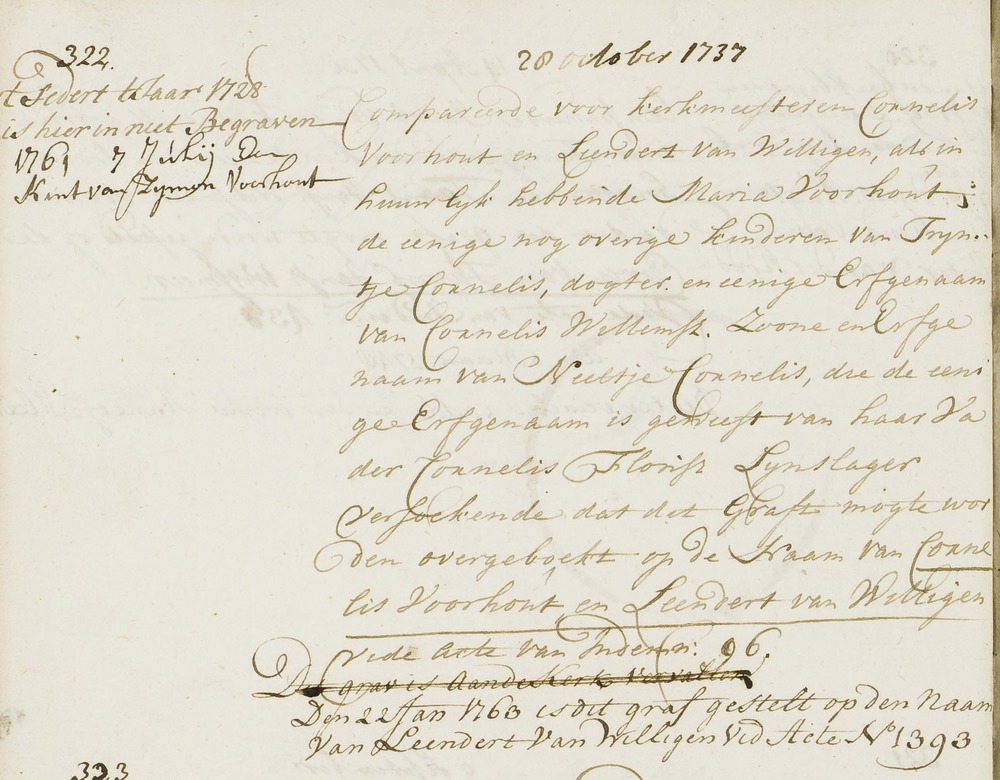 322.
28 october 1737
t Sedert t Jaar 1728
is hier in niet Begraven
1761 7 Julij Een
Kint van Zymon Voorhout
Compareerde voor kerkmeesteren Cornelis
Voorhout en Leendert van Willigen, als in
huuwlyk hebbende Maria Voorhout;
de eenige nog overige kinderen van Tryn-
tje Cornelis, dogter en eenige Erfgenaam
van Cornelis Willemsz. Zoone en Erfge
naam van Neeltje Cornelis, die de eeni
ge Erfgenaam is geweest van haar Va
der Cornelis Florisz Lynslager
versoekende dat dit Graft mogte wor
den overgeboekt op de Naam van Corne
lis Voorhout en Leendert van Willigen
vide Acte van Indemn: 96.
Dit grav is aan de Kerk vervallen
Den 22 Jan 1763 is dit graf gestelt op den Naam
van Leendert van Willigen Vid Acte No 1393
323